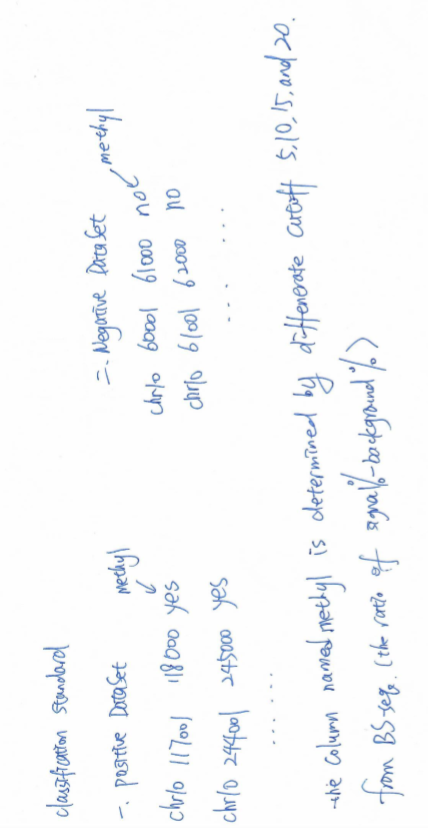 classification standard
一. positive DataSet
methyl
chr10 117001 118000 yes
chr10 244001 245000 yes
... ...
二. Negative DataSet
methyl
chr10 60001 61000 no
chr10 61001 62000 no
... ...
the column named methyl is determined by differenerate cutoff 5,10,15,and 20.
from BS-seq. (the ratio of signal%-background%)